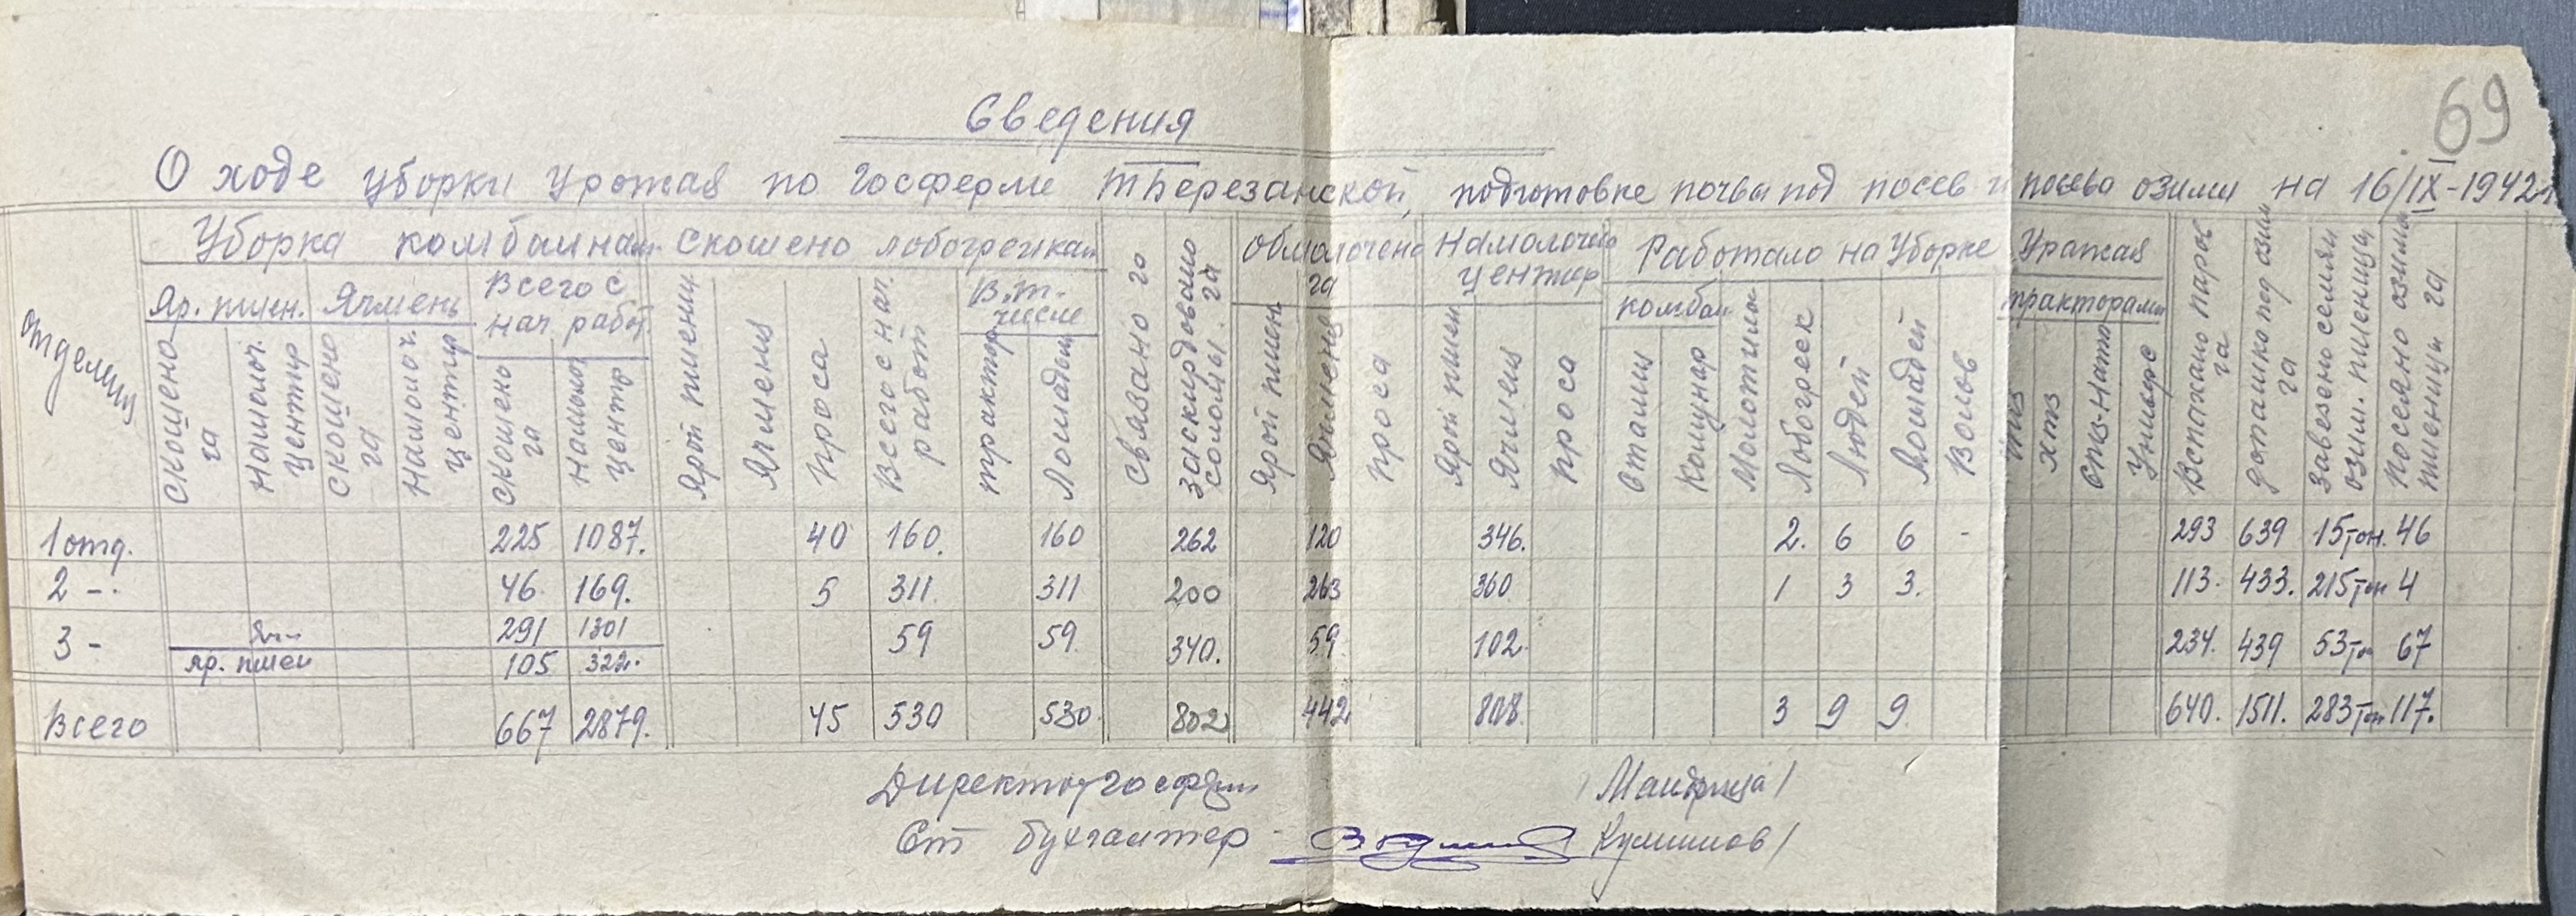 69
Сведения
О ходе уборки урожая по госферме тБерезанской, подготовке почвы под посев и посева озими на 16/IX-1942г
Отделения
Уборка комбайнам
Скошено лобогрейкам
Связано га
Заскирдовано соломы. га
Обмолочено га
Намолочено центнер
Работало на уборке Уражая
Яр. пшен. Ячмень Всего с нач. работ.
В.т-числе
комбай
тракторами
Скошено га
Намолоч. центнр
Скошено га
Намолоч. центнр
Скошено га
Намолот центр
Ярой пшениц
Ячменя
Проса
Всего с нач. работ
трактор
Лошадьм
Ярой пшен
Ячменя
проса
Ярой пшен
Ячменя
проса
Сталин
Комунар
Молотилок
Лобогреек
Людей
Лошадей
Волов
хтз
Стз-Натти
Универс
Вспахано паров га
допашко под озим га
Завезено семян озим. пшеницы
Посеяно озимы пшеницы га
1 отд. 225 1087. 40 160. 160 262 120 346. 2. 6 6 - 293 639 15 тон. 46
2 -- 46. 169. 5 311. 311 200 263 360 1 3 3. 113. 433. 215 тон 4
3 - Яч-- 291 1301 59 59. 340. 59. 102. 234. 439 53 тон 67
яр. пшен 105 322.
Всего 667 2879. 45 530 530. 802 442 808. 3 9 9. 640. 1511. 283 тон. 117.
Директор госферм /Мандрица/
Ст бухгалтер Кулишов/